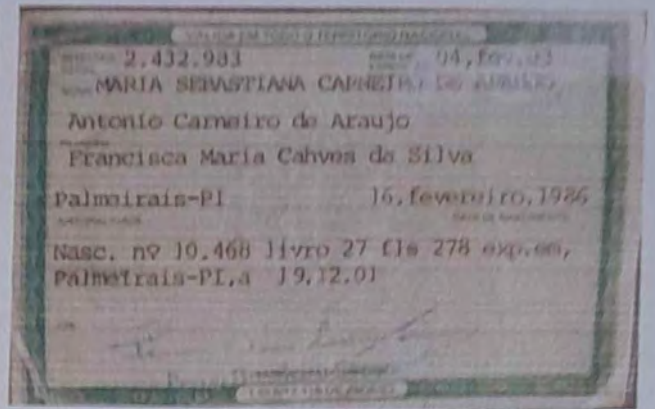 VÁLIDA EM TODO O TERRITÓRIO NACIONAL
2.432.983 04,fev.03
MARIA SEBASTIANA CARNEIRO DE ARAUJO
Antonio Carneiro de Araujo
Francisca Maria Cahves da Silva
Palmeirais-PI 16,fevereiro,1986
DATA DE NASCIMENTO
Nasc. nº 10.468 livro 27 fls 278 exp.em,
Palmeirais-PI,a 19.12.01